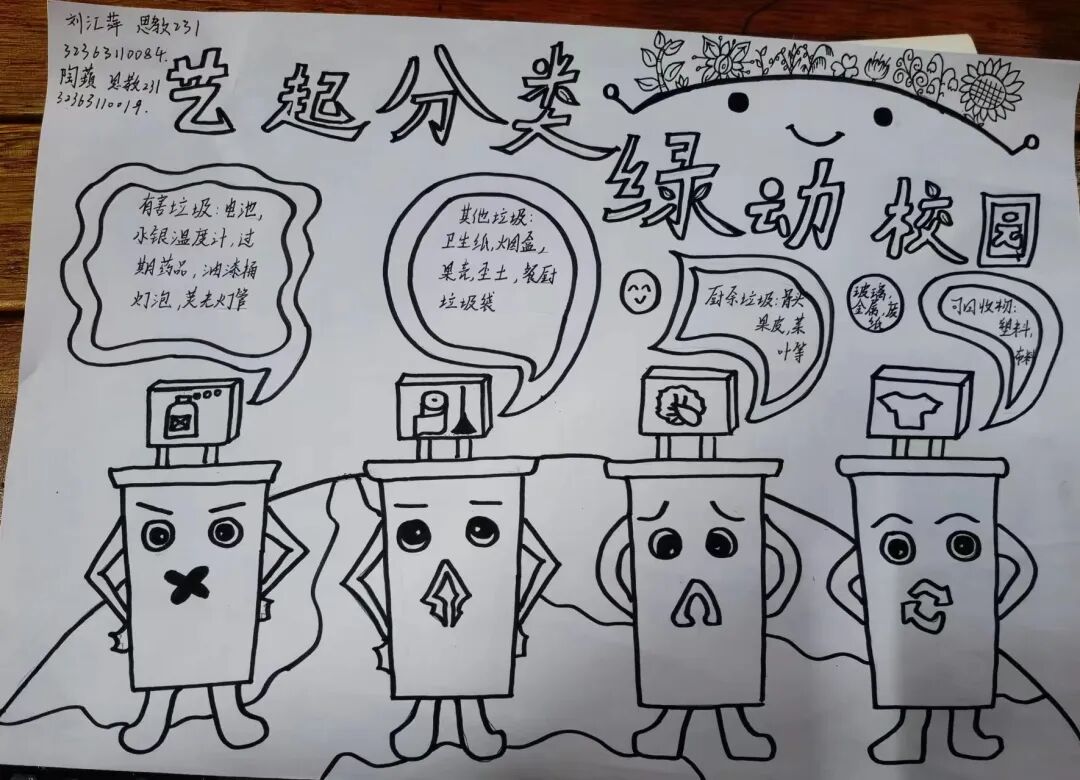 刘汇萍 思教231
32363110084.
陶薇 思教231
32363110019.
艺起分类
绿动校园
有害垃圾:电池,
水银温度计,过
期药品,油漆桶
灯泡,荧光灯管
其他垃圾:
卫生纸,烟盒,
果壳,尘土,餐厨
垃圾袋
厨余垃圾:骨头
果皮,菜
叶等
玻璃,
金属,废
纸
可回收物:
塑料,
布料